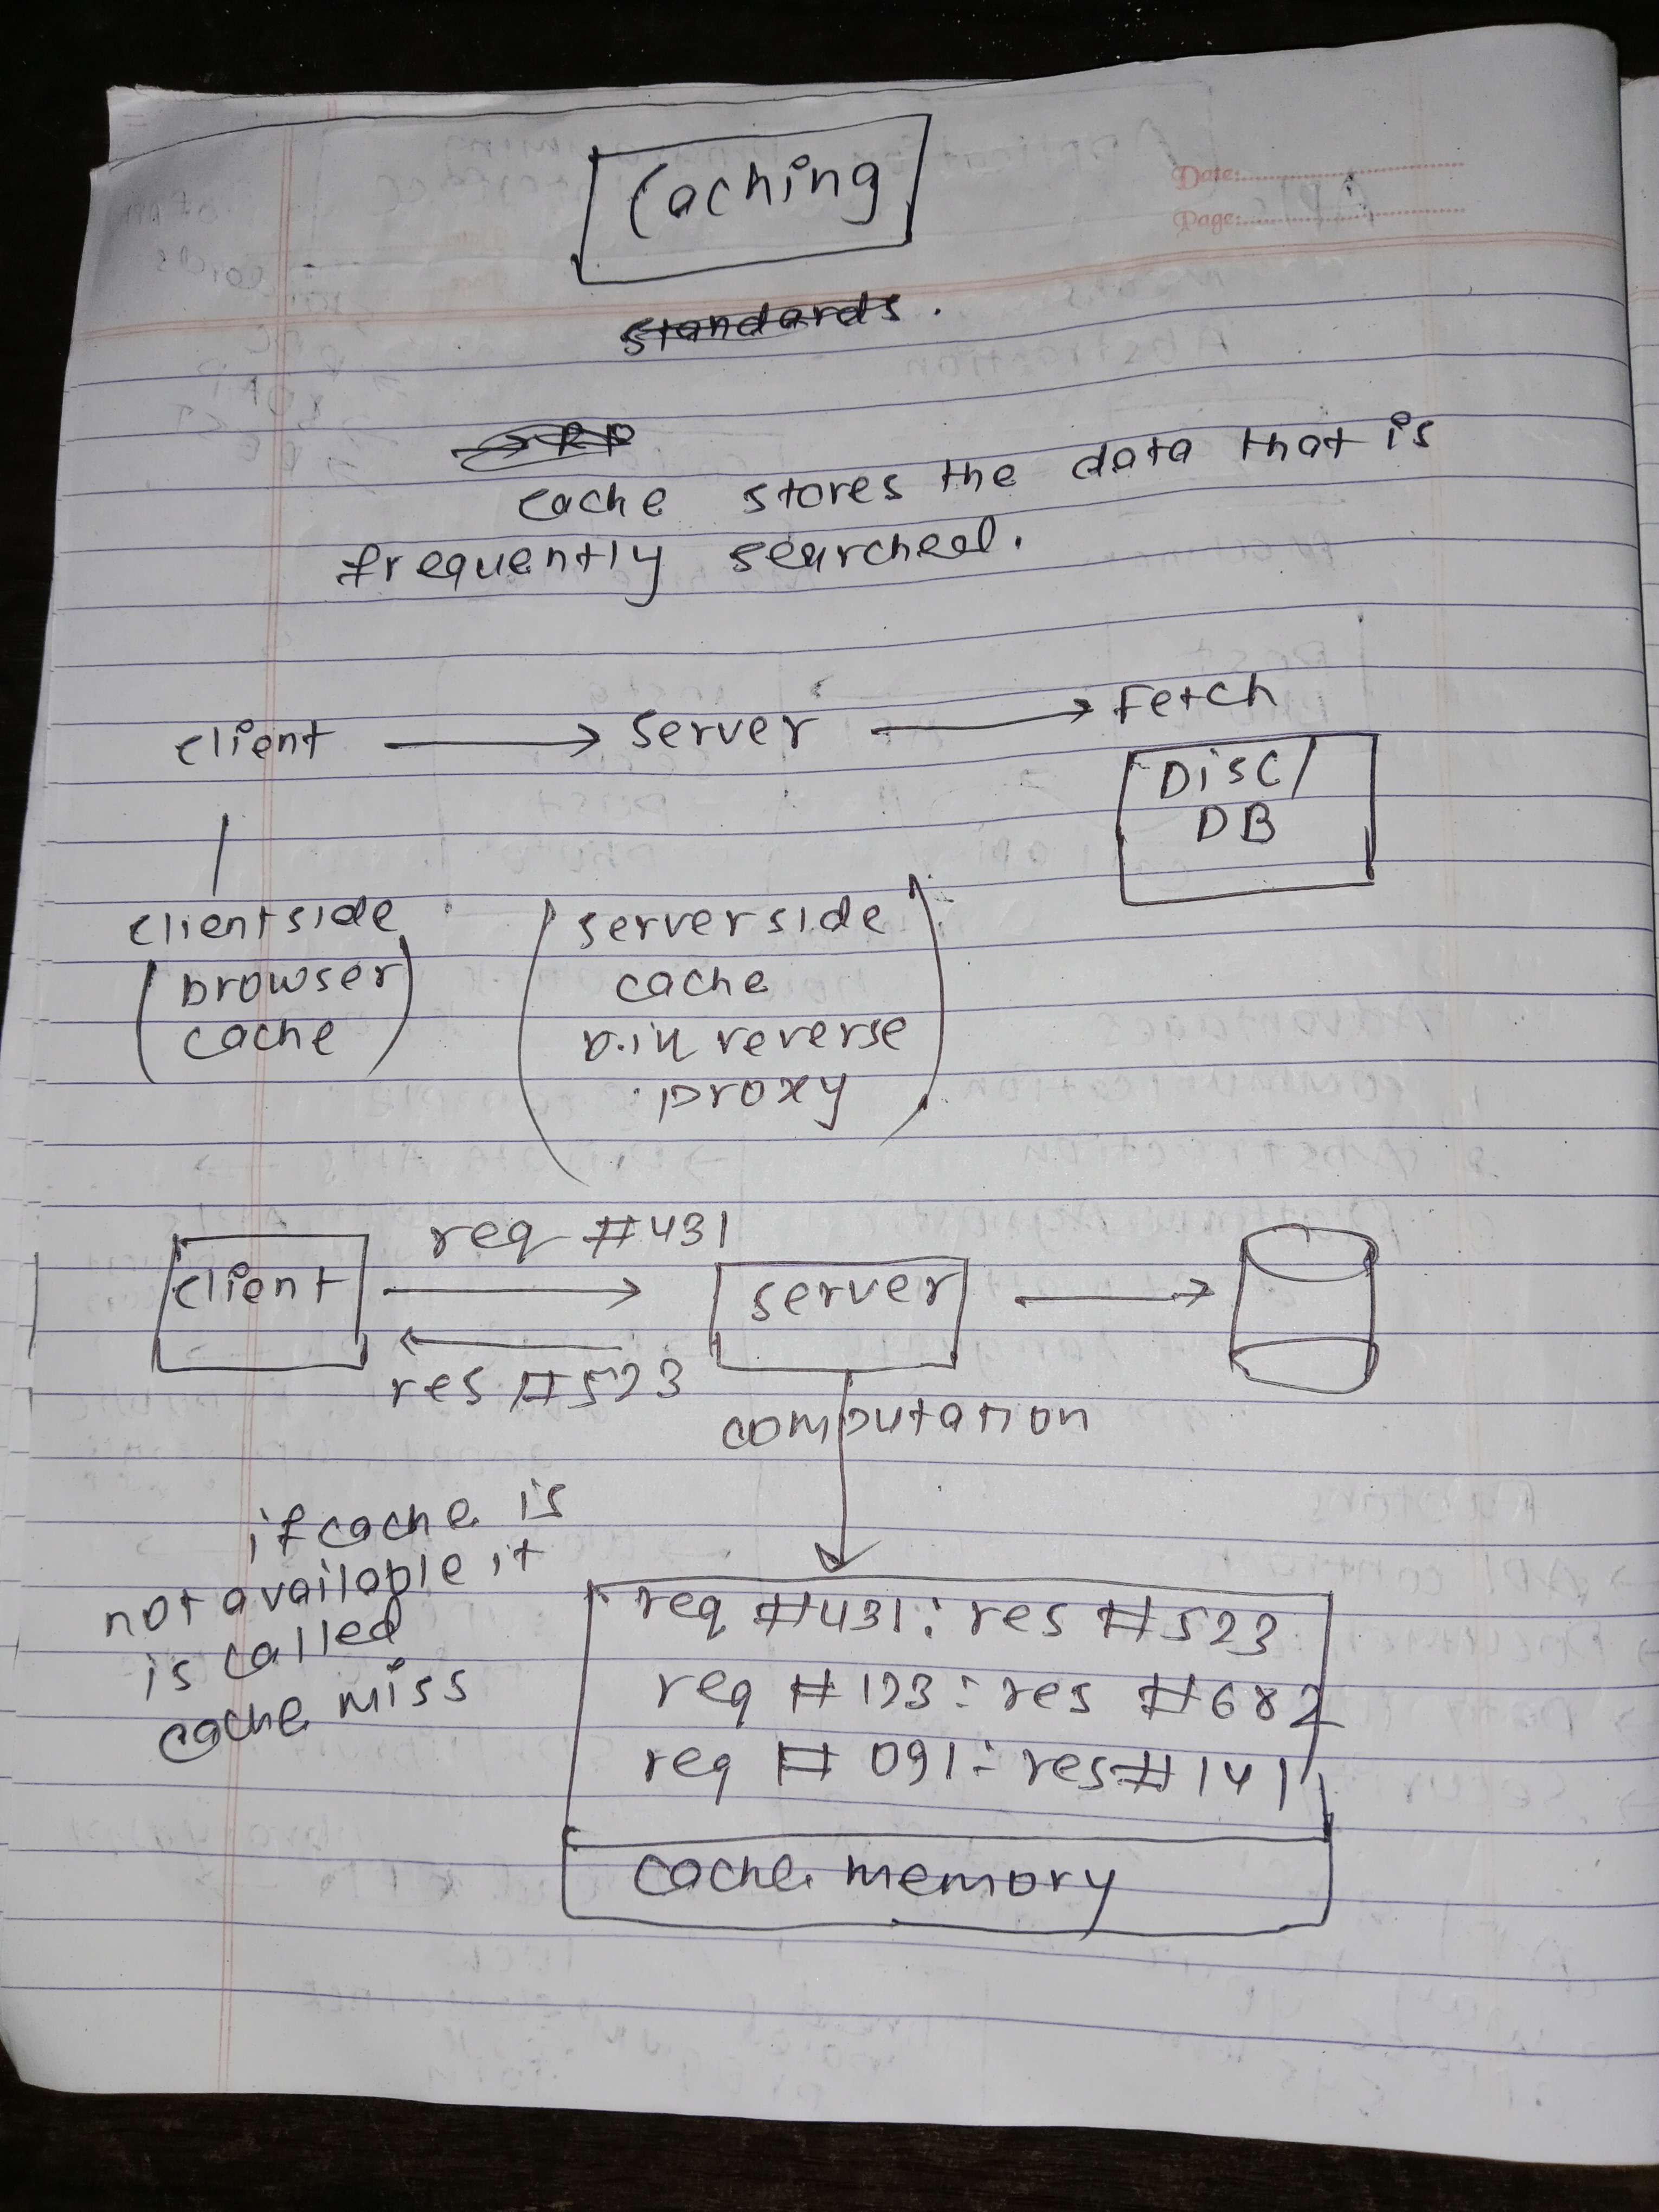 Caching
Date:
Page:
standards.
cache stores the data that is
frequently searched.
client → server → Fetch
DISC/
DB
clientside
(browser
cache)
(serverside
cache
reverse
proxy)
req #431
client → server →
res #523
computation
if cache is
not available it
is called
cache miss
req #431: res #523
req #123: res #682
req #091: res #141
cache memory